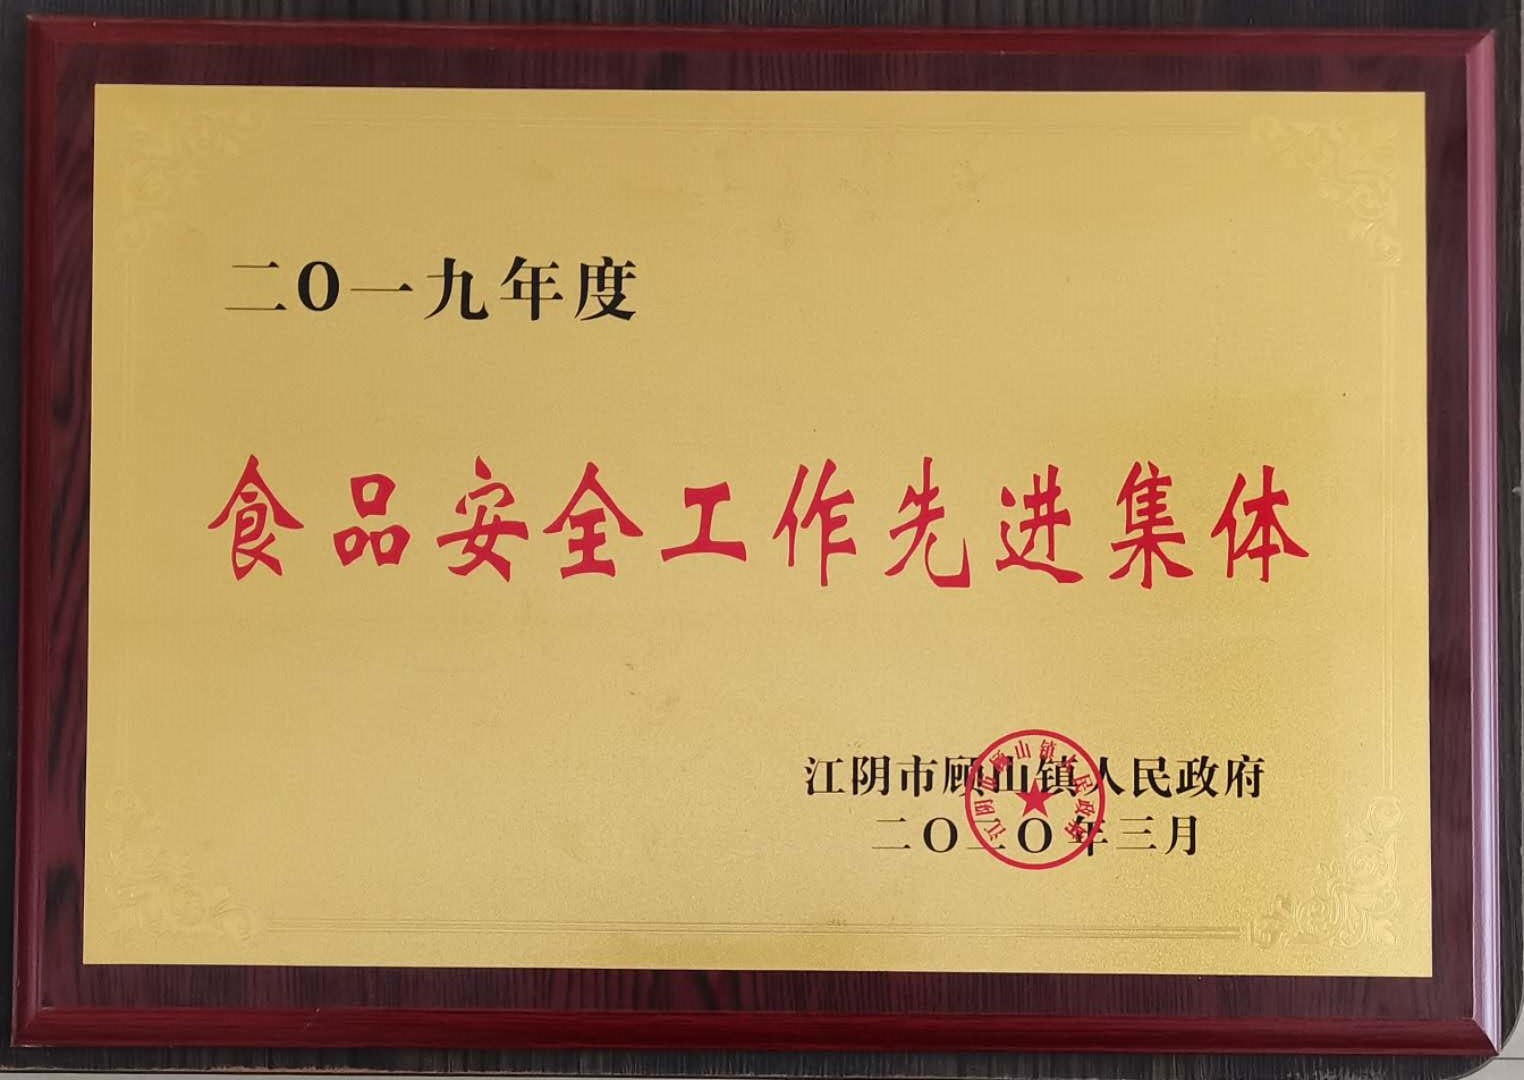 二〇一九年度
食品安全工作先进集体
江阴市顾山镇人民政府
二〇二〇年三月
江阴市顾山镇人民政府